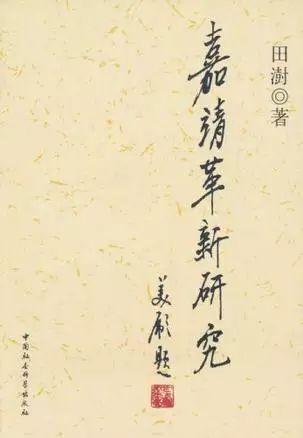 田澍◎著
嘉靖革新研究
美启题
中国社会科学出版社